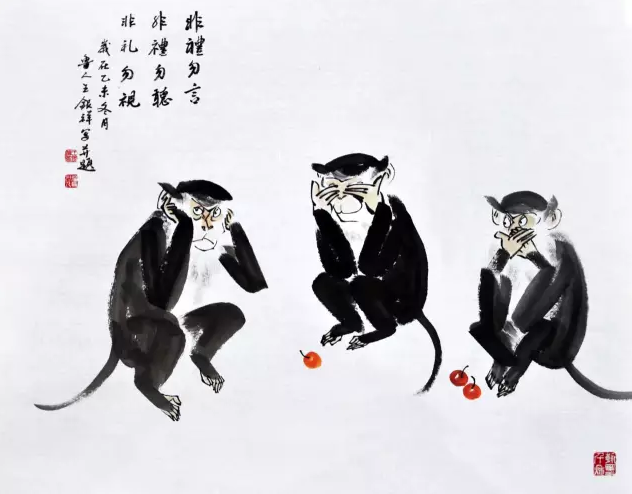 非禮勿言
非禮勿聽
非礼勿視
歲在乙未冬月
魯人王銀祥写并題